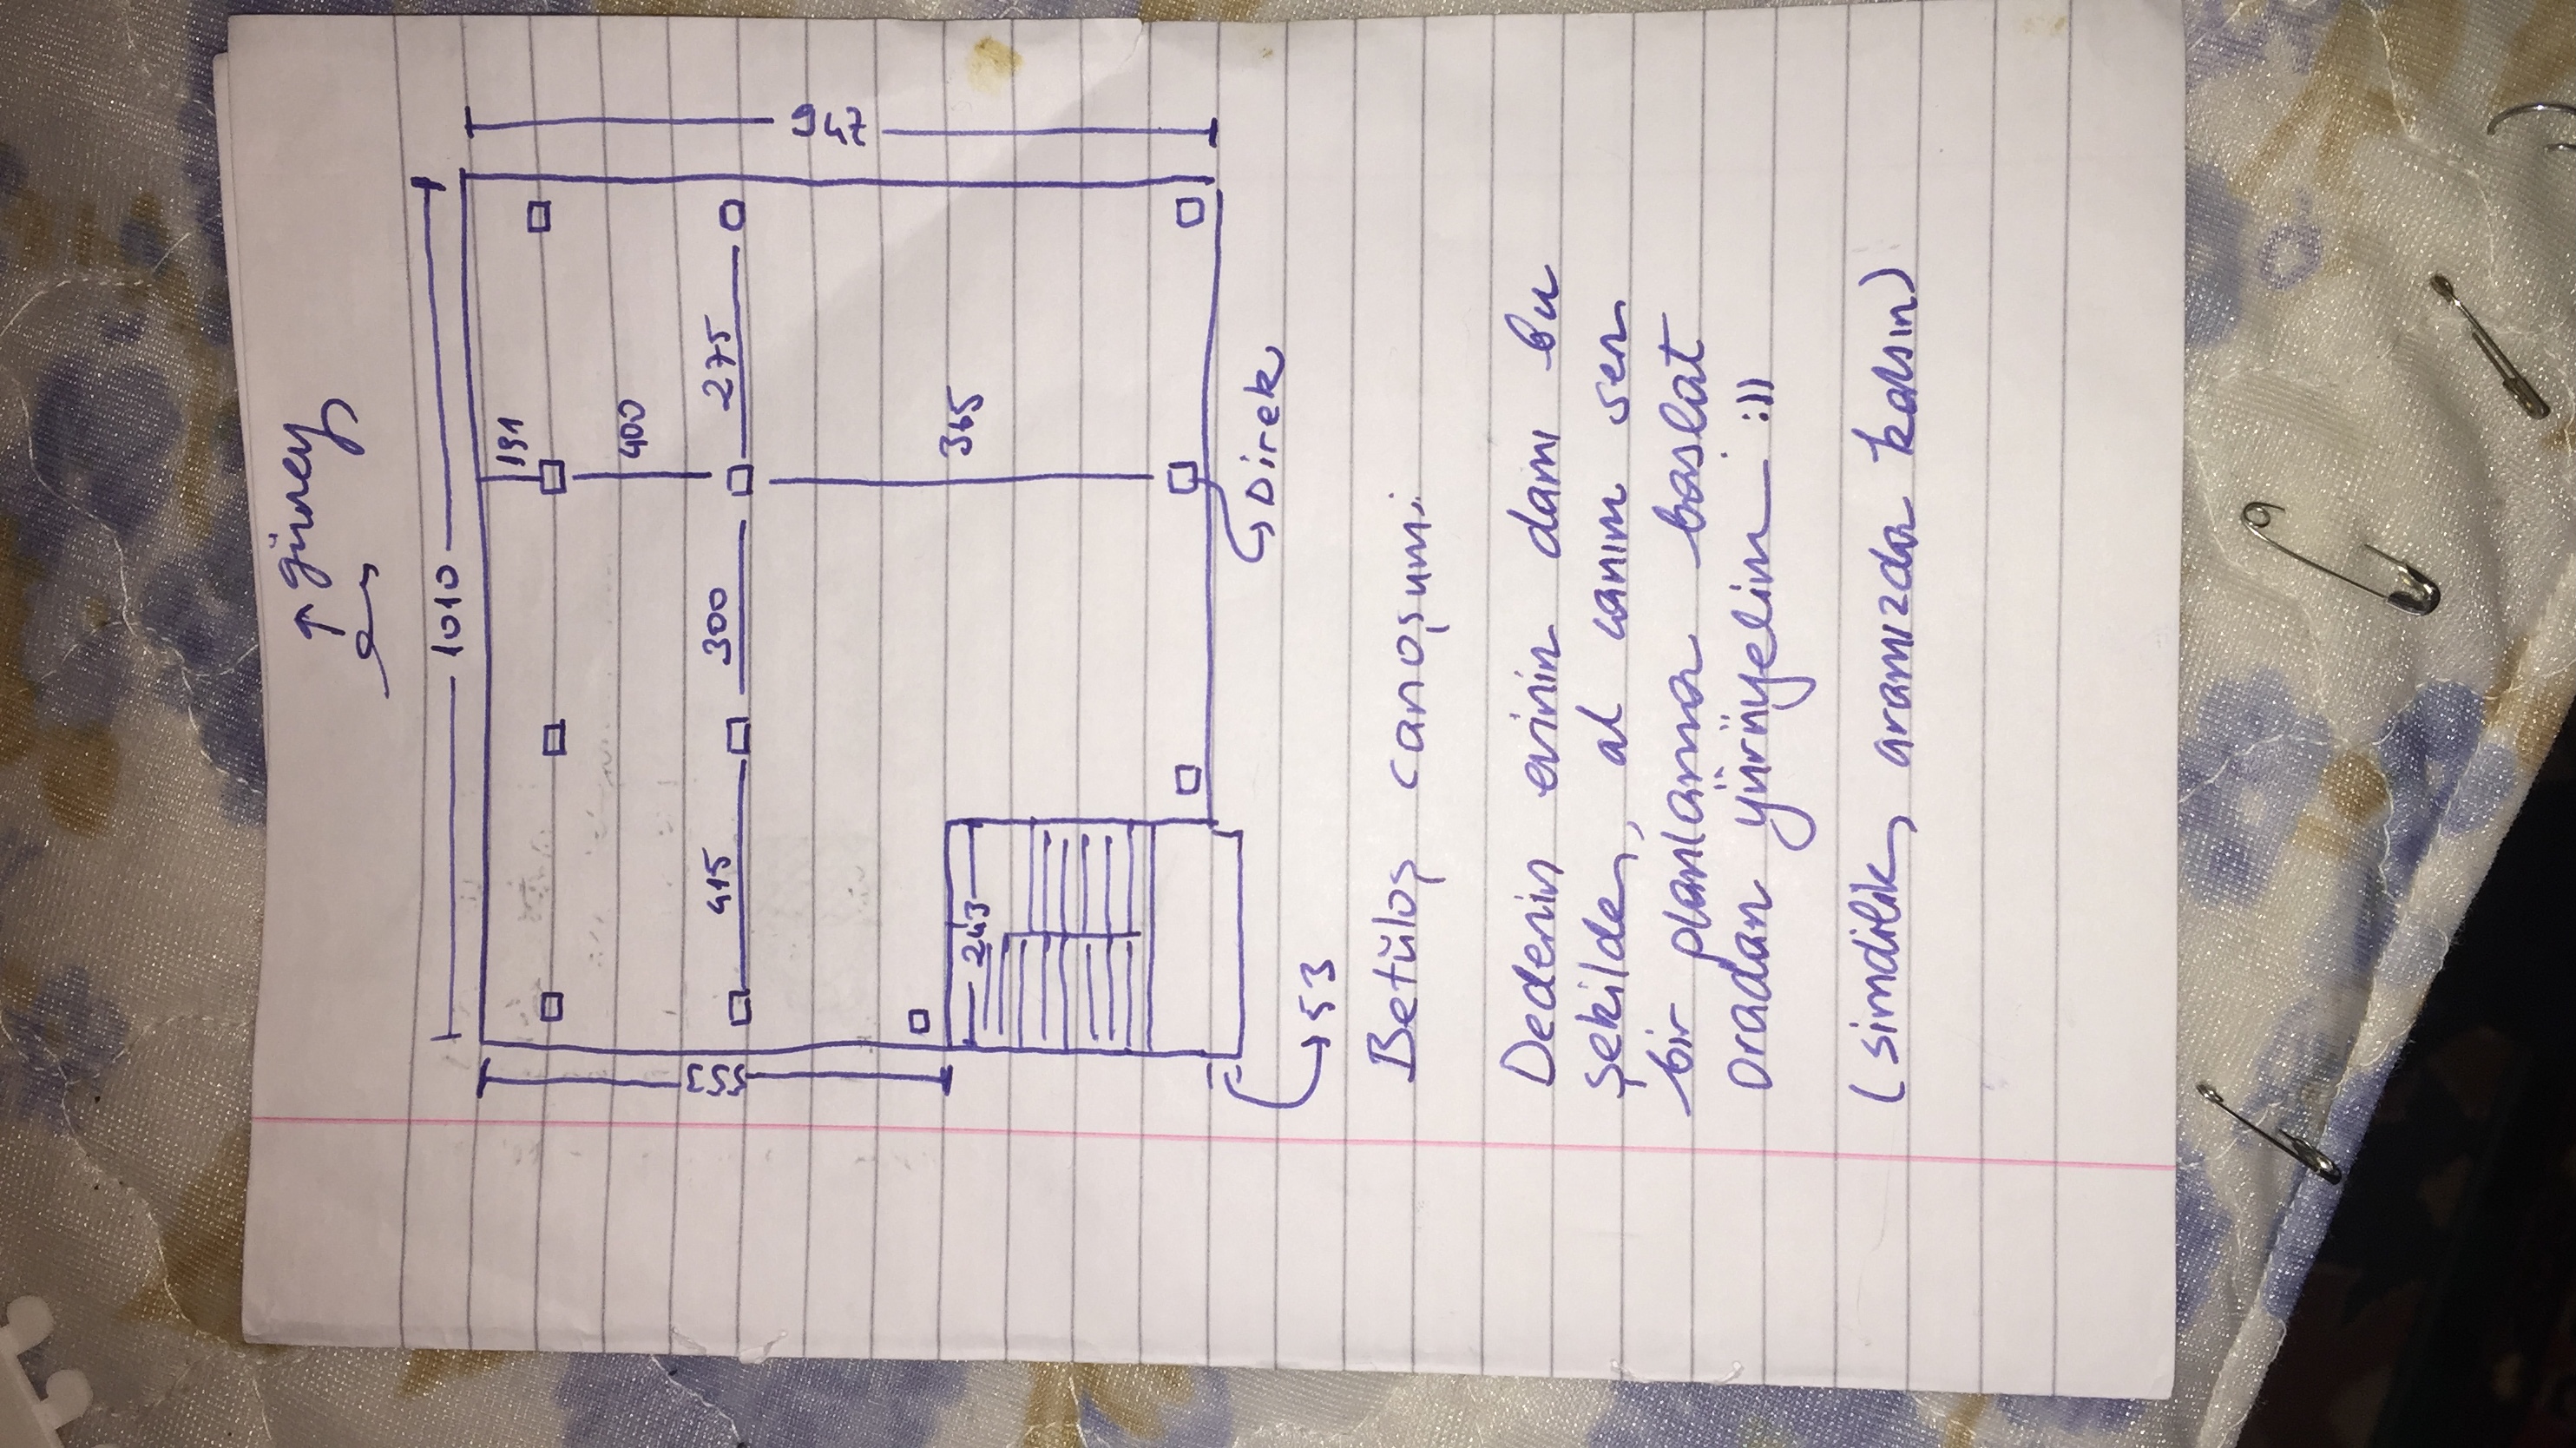 ↑ güney
1010
191
400
553
415 300 275
947
365
243
Direk
53
Betüloş canoşum:
Dedenin evinin damı bu
şekilde, al canım sen
bir planlama baslat
oradan yürüyelim :))
(simdilik aramızda kalsın)